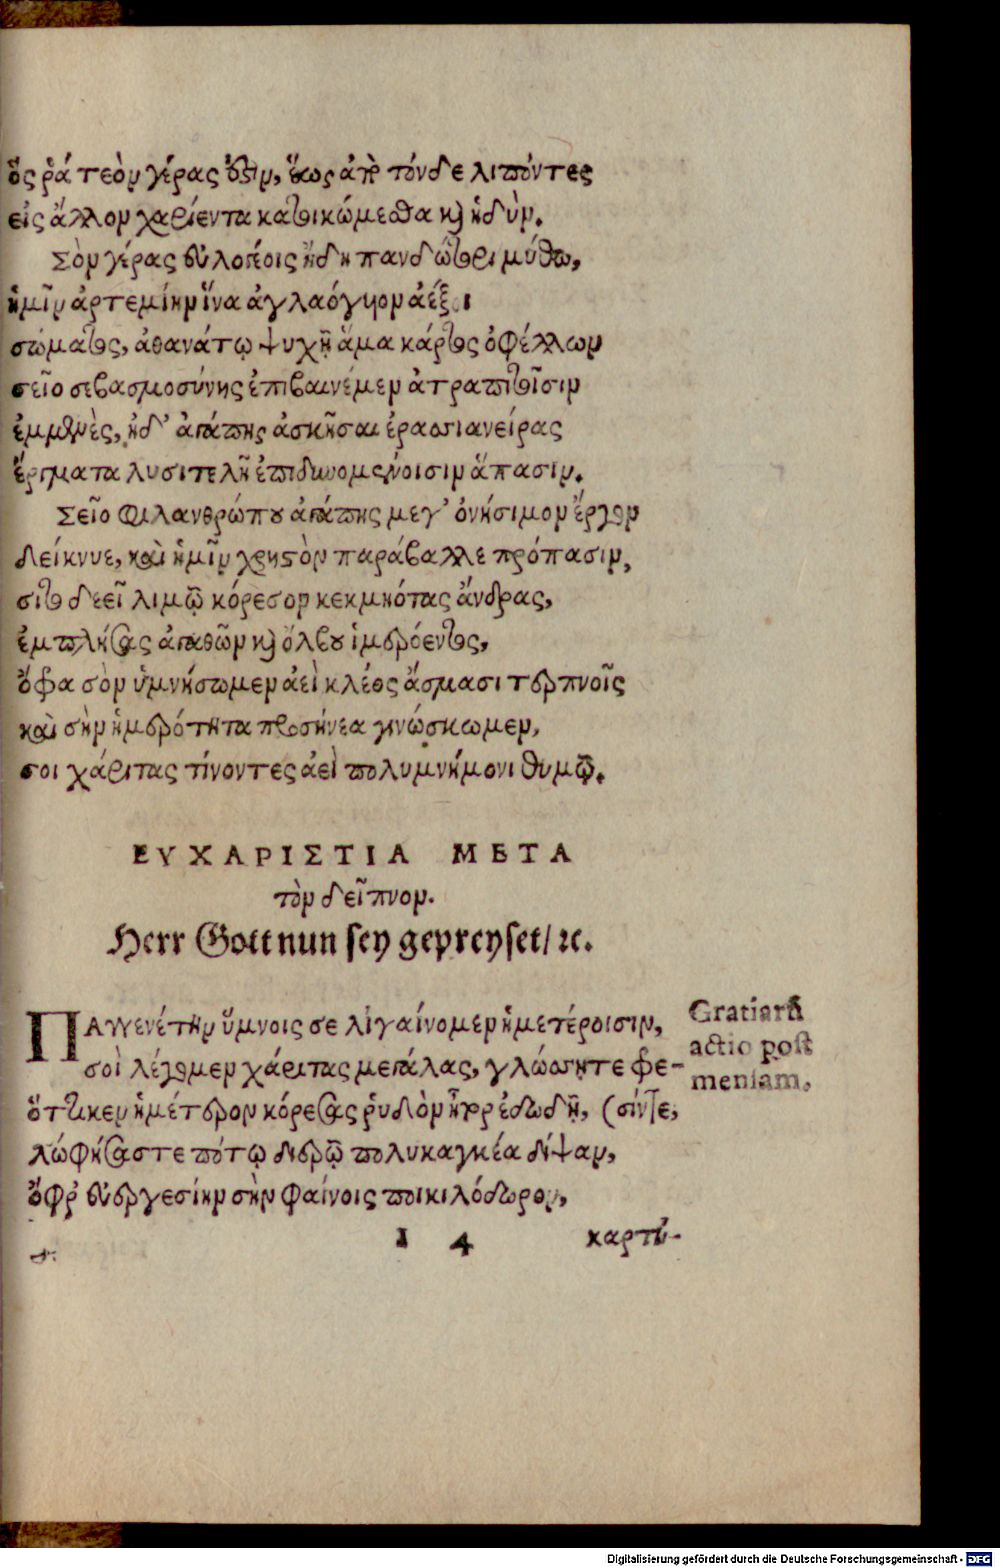 ὅς ῥά τεὸν γέρας ὅξιν, ἕως ἀπὸ τόνδε λιπόντες
εἰς ἄλλον χαρίεντα καθικώμεθα καὶ ἡδύν.
Σὸν γέρας εὐλογέοις ἤδη πανδώτορι μύθῳ,
ἡμῖν ἀρτεμίην ἵνα ἀγλαόγυιον ἀέξοι
σώματος, ἀθανάτῳ ψυχῇ ἅμα κάρτος ὀφέλλων
σεῖο σεβασμοσύνης ἐπιβαινέμεν ἀτραπιτοῖσιν
ἐμμενὲς, ἠδ' ἀγάπης ἀσκῆσαι ἐρασιανείρας
ἔργματα λυσιτελῆ ἐπιδευομένοισιν ἅπασιν.
Σεῖο φιλανθρώπου ἀγάπης μεγ' ὀνήσιμον ἔργον
δείκνυε, καὶ ἡμῖν χρηστὸν παράβαλλε πρόπασιν,
σιτοδεεῖ λιμῷ κόρεσον κεκμηότας ἄνδρας,
ἐμπλήσας ἀγαθῶν καὶ ὄλβου ἱμερόεντος,
ὄφρα σὸν ὑμνήσωμεν ἀεὶ κλέος ᾄσμασι τερπνοῖς
καὶ σὴν ἡμερότητα προσηνέα γινώσκωμεν,
σοι χάριτας τίνοντες ἀεὶ πολυμνήμονι θυμῷ.
ΕΥΧΑΡΙΣΤΙΑ ΜΕΤΑ
τὸν δεῖπνον.
Herr Gott nun sey gepreyset/ ꝛc.
ΠΑΓΓΕΝέτην ὕμνοις σε λιγαίνομεν ἡμετέροισιν,
σοὶ λέγομεν χάριτας μεγάλας, γλώσσῃ τε φρε-
ὅττικεν ἡμέτερον κόρεσας ῥυδὸν ἦτορ ἐδωδῇ, (σίν γε,
λώφησάς τε πότῳ διερῷ πολυκαγκέα δίψαν,
ὄφρ' εὐεργεσίην σὴν φαίνοις ποικιλόδωρον,
I 4 καρτύ-
Gratiarũ
actio post
mensam,